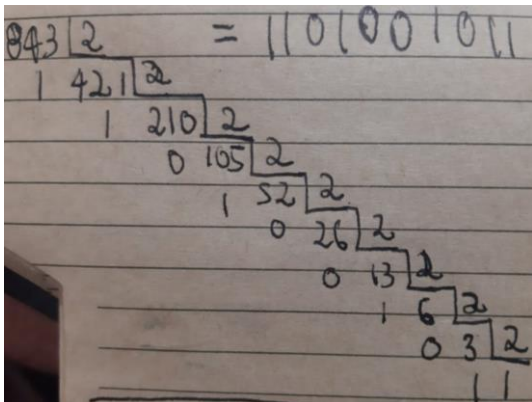 843 2 = 1101001011
1 421 2
1 210 2
0 105 2
1 52 2
0 26 2
0 13 2
1 6 2
0 3 2
1 1